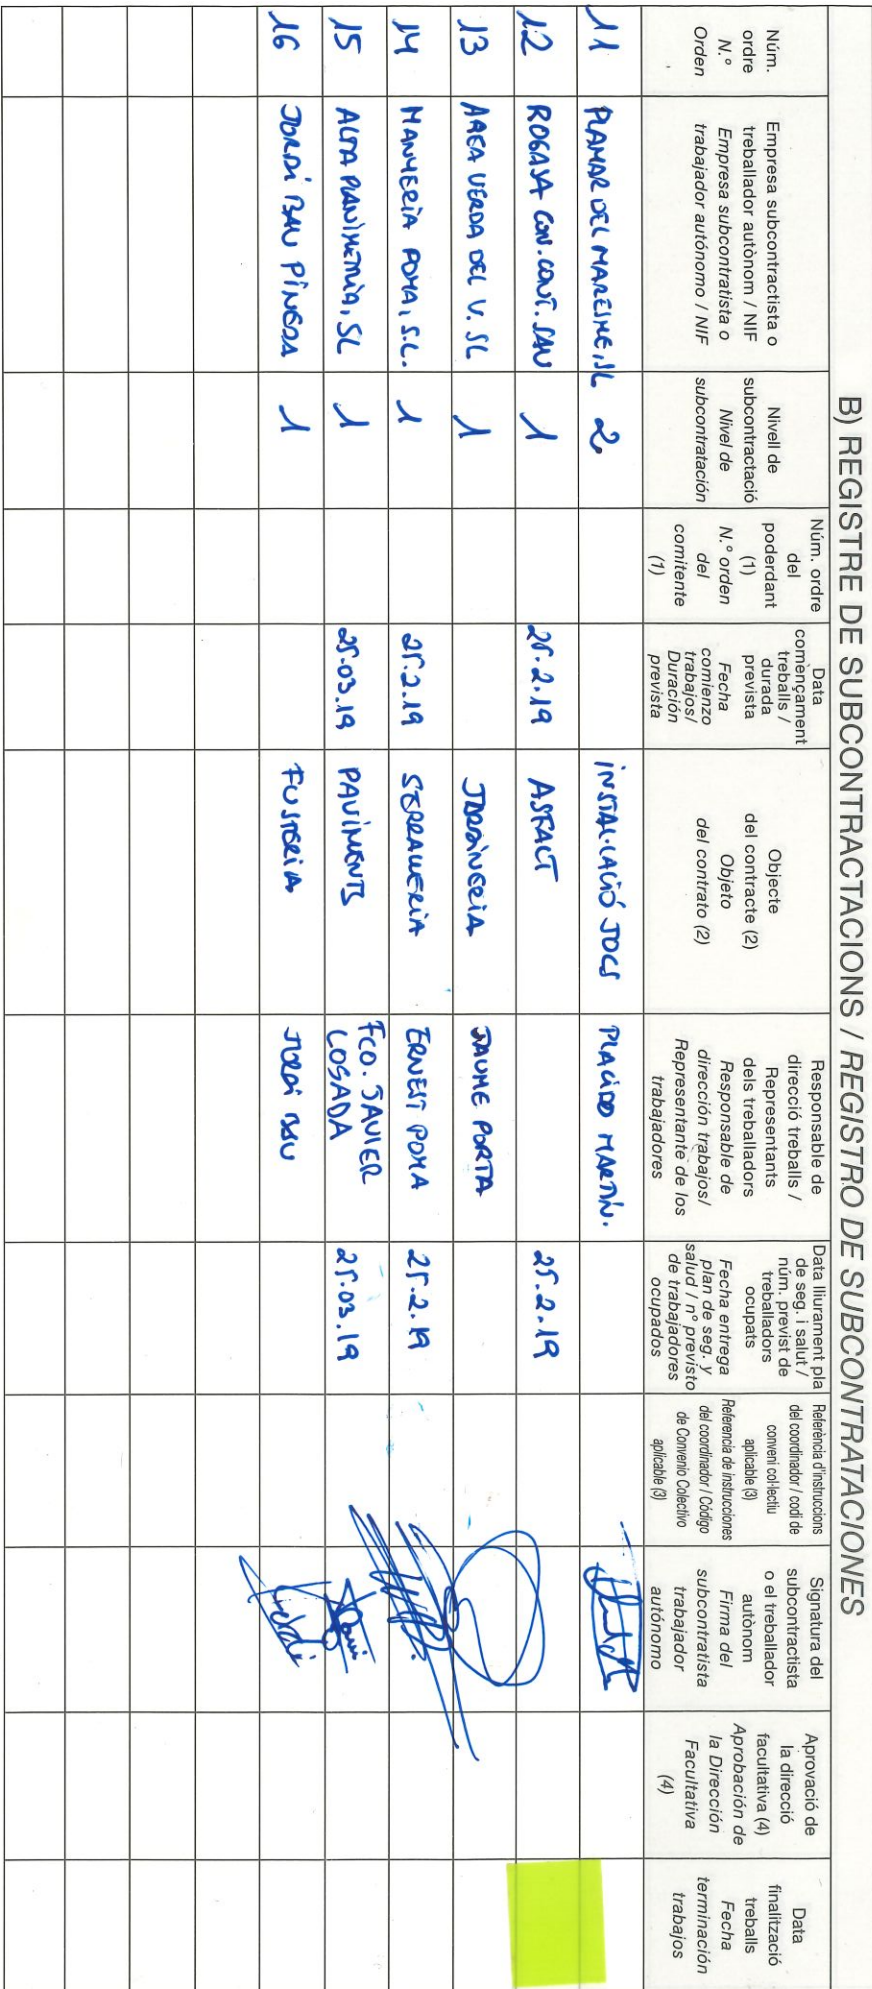 B) REGISTRE DE SUBCONTRACTACIONS / REGISTRO DE SUBCONTRATACIONES
Núm.
ordre
N.º
Orden
Empresa subcontractista o
treballador autònom / NIF
Empresa subcontratista o
trabajador autónomo / NIF
Nivell de
subcontractació
Nivel de
subcontratación
Núm. ordre
del
poderdant
(1)
N.º orden
del
comitente
(1)
Data
començament
treballs /
durada
prevista
Fecha
comienzo
trabajos/
Duración
prevista
Objecte
del contracte (2)
Objeto
del contrato (2)
Responsable de
direcció treballs /
Representants
dels treballadors
Responsable de
dirección trabajos/
Representante de los
trabajadores
Data lliurament pla
de seg. i salut /
núm. previst de
treballadors
ocupats
Fecha entrega
plan de seg. y
salud / nº previsto
de trabajadores
ocupados
Referència d'instruccions
del coordinador / codi de
conveni col·lectiu
aplicable (3)
Referencia de instrucciones
del coordinador / Código
de Convenio Colectivo
aplicable (3)
Signatura del
subcontractista
o el treballador
autònom
Firma del
subcontratista
trabajador
autónomo
Aprovació de
la direcció
facultativa (4)
Aprobación de
la Dirección
Facultativa
(4)
Data
finalització
treballs
Fecha
terminación
trabajos
11 PLAMAR DEL MARESME, SL 2 INSTAL·LACIÓ JOCS PLACIDO MARTÍN.
12 ROGASA CON. CONT. SAU 1 25.2.19 ASFALT 25.2.19
13 AREA VERDA DEL V. SL 1 JARDINERIA JAUME PORTA
14 MANYERIA POMA, S.L. 1 25.2.19 SERRALLERIA ERNEST POMA 25.2.19
15 ALTA PLANIMETRIA, SL 1 25.03.19 PAVIMENTS FCO. JAVIER LOSADA 25.03.19
16 JORDI BAU PINEDA 1 FUSTERIA JORDI BAU